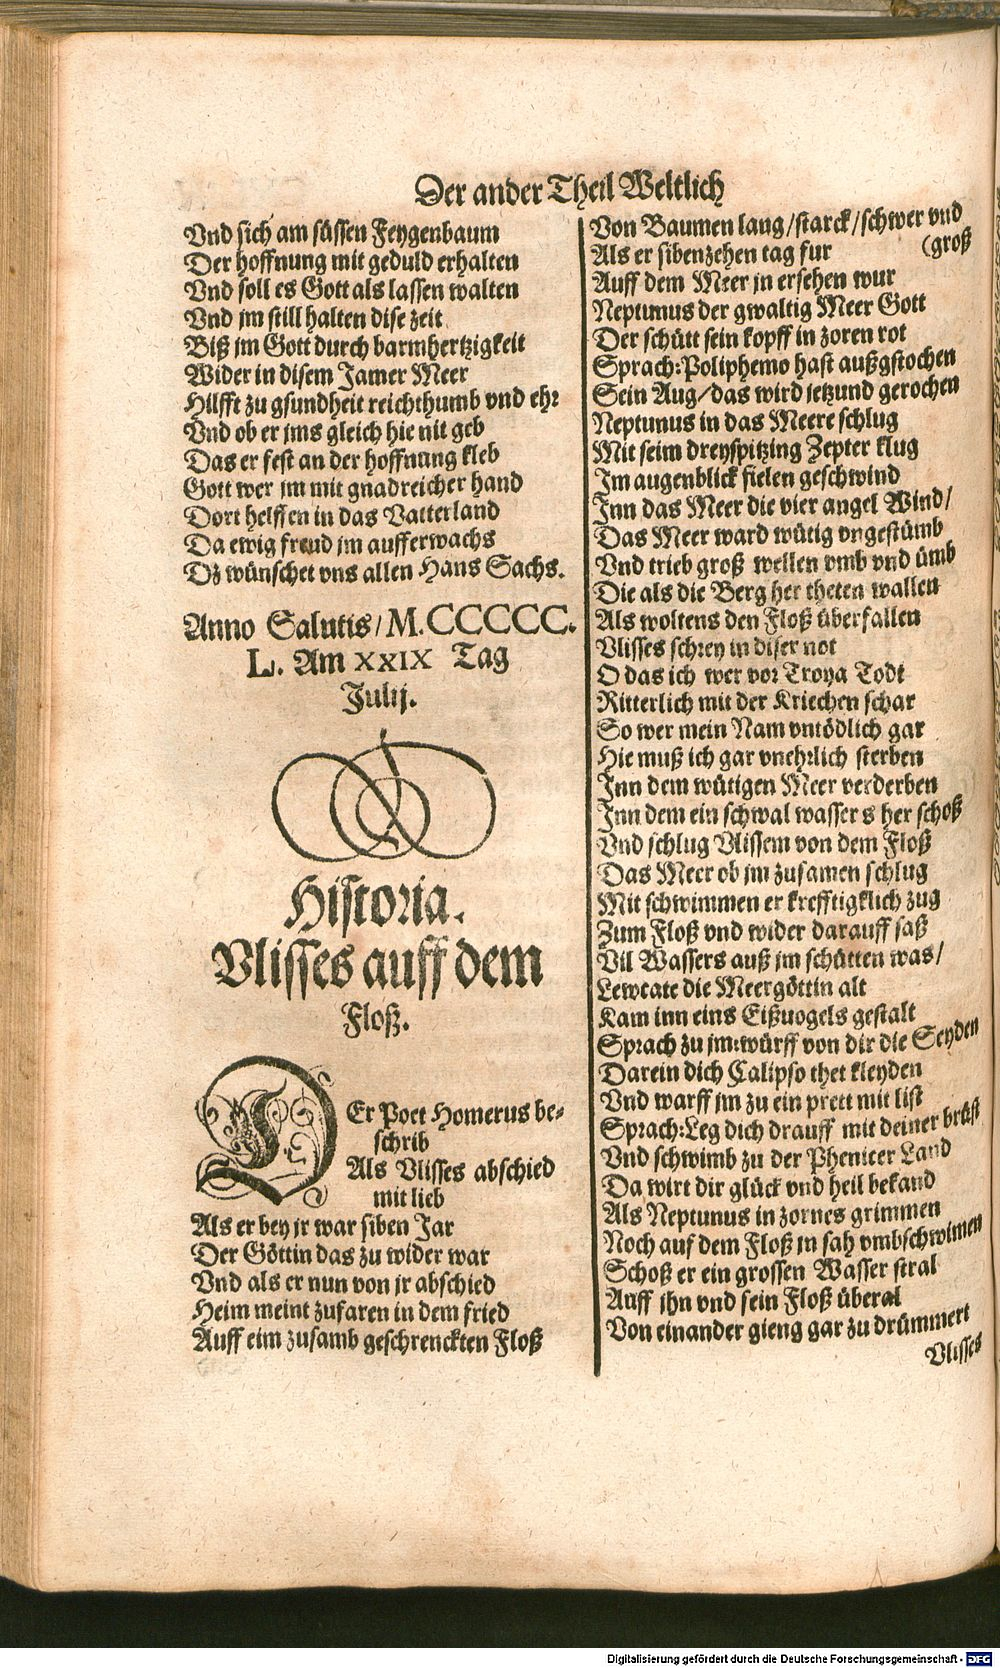 Der ander Theil Weltlich
Vnd sich am süssen Feygenbaum
Der hoffnung mit geduld erhalten
Vnd soll es Gott als lassen walten
Vnd jm still halten dise zeit
Biß jm Gott durch barmhertzigkeit
Wider in disem Jamer Meer
Hilfft zu gsundheit reichthumb vnd ehr
Vnd ob er jms gleich hie nit geb
Das er fest an der hoffnung kleb
Gott wer jm mit gnadreicher hand
Dort helffen in das Vatterland
Da ewig freud jm aufferwachs
Dz wünschet vns allen Hans Sachs.
Anno Salutis/M.CCCCC.
L. Am XXIX Tag
Julij.
Historia.
Vlisses auff dem
Floß.
DEr Poet Homerus be-
schrib
Als Vlisses abschied
mit lieb
Als er bey jr war siben Jar
Der Göttin das zu wider war
Vnd als er nun von jr abschied
Heim meint zufaren in dem fried
Auff eim zusamb geschrenckten Floß
Von Baumen lang/starck/schwer vnd
(groß
Als er sibenzehen tag fur
Auff dem Meer jn ersehen wur
Neptunus der gwaltig Meer Gott
Der schütt sein kopff in zoren rot
Sprach:Poliphemo hast außgstochen
Sein Aug/das wird jetzund gerochen
Neptunus in das Meere schlug
Mit seim dreyspitzing Zepter klug
Im augenblick fielen geschwind
Inn das Meer die vier angel Wind/
Das Meer ward wütig vngestümb
Vnd trieb groß wellen vmb vnd ümb
Die als die Berg her theten wallen
Als woltens den Floß überfallen
Vlisses schrey in diser not
O das ich wer vor Troya Todt
Ritterlich mit der Kriechen schar
So wer mein Nam vntödlich gar
Hie muß ich gar vnehrlich sterben
Inn dem wütigen Meer verderben
Inn dem ein schwal wassers her schoß
Vnd schlug Vlissem von dem Floß
Das Meer ob jm zusamen schlug
Mit schwimmen er krefftigklich zug
Zum Floß vnd wider darauff saß
Vil Wassers auß jm schütten was/
Lewtate die Meergöttin alt
Kam inn eins Eißuogels gestalt
Sprach zu jm:würff von dir die Seyden
Darein dich Calipso thet kleyden
Vnd warff jm zu ein prett mit list
Sprach:Leg dich drauff mit deiner brüst
Vnd schwimb zu der Phenicer Land
Da wirt dir glück vnd heil bekand
Als Neptunus in zornes grimmen
Noch auf dem Floß jn sah vmbschwimen
Schoß er ein grossen Wasser stral
Auff ihn vnd sein Floß überal
Von einander gieng gar zu drümmert
Vlisses
Digitalisierung gefördert durch die Deutsche Forschungsgemeinschaft - DFG